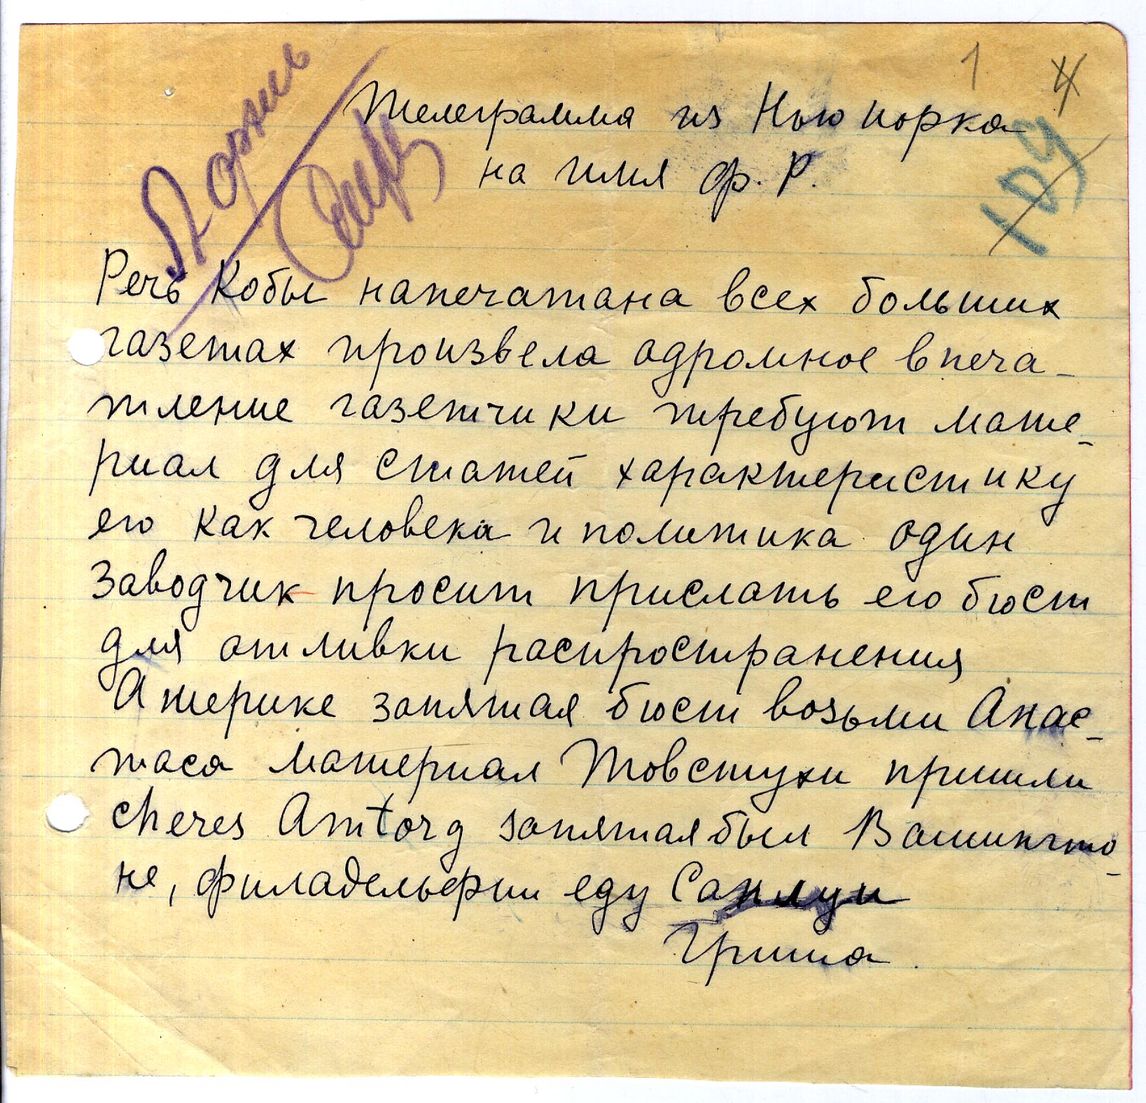 1 4
109
Телеграмма из Нью иорка
на имя ф. Р.
Речь Кобы напечатана всех больших
газетах произвела одромное впеча-
тление газетчики требуют мате-
риал для статей характеристику
его как человека и политика один
заводчик просит прислать его бюст
для отливки распространения
Америке запятая бюст возьми Анас-
таса материал Товстухи пришли
cheres Amtorg запятая был Вашингто-
не, филадельфии еду Санлуи
Гриша